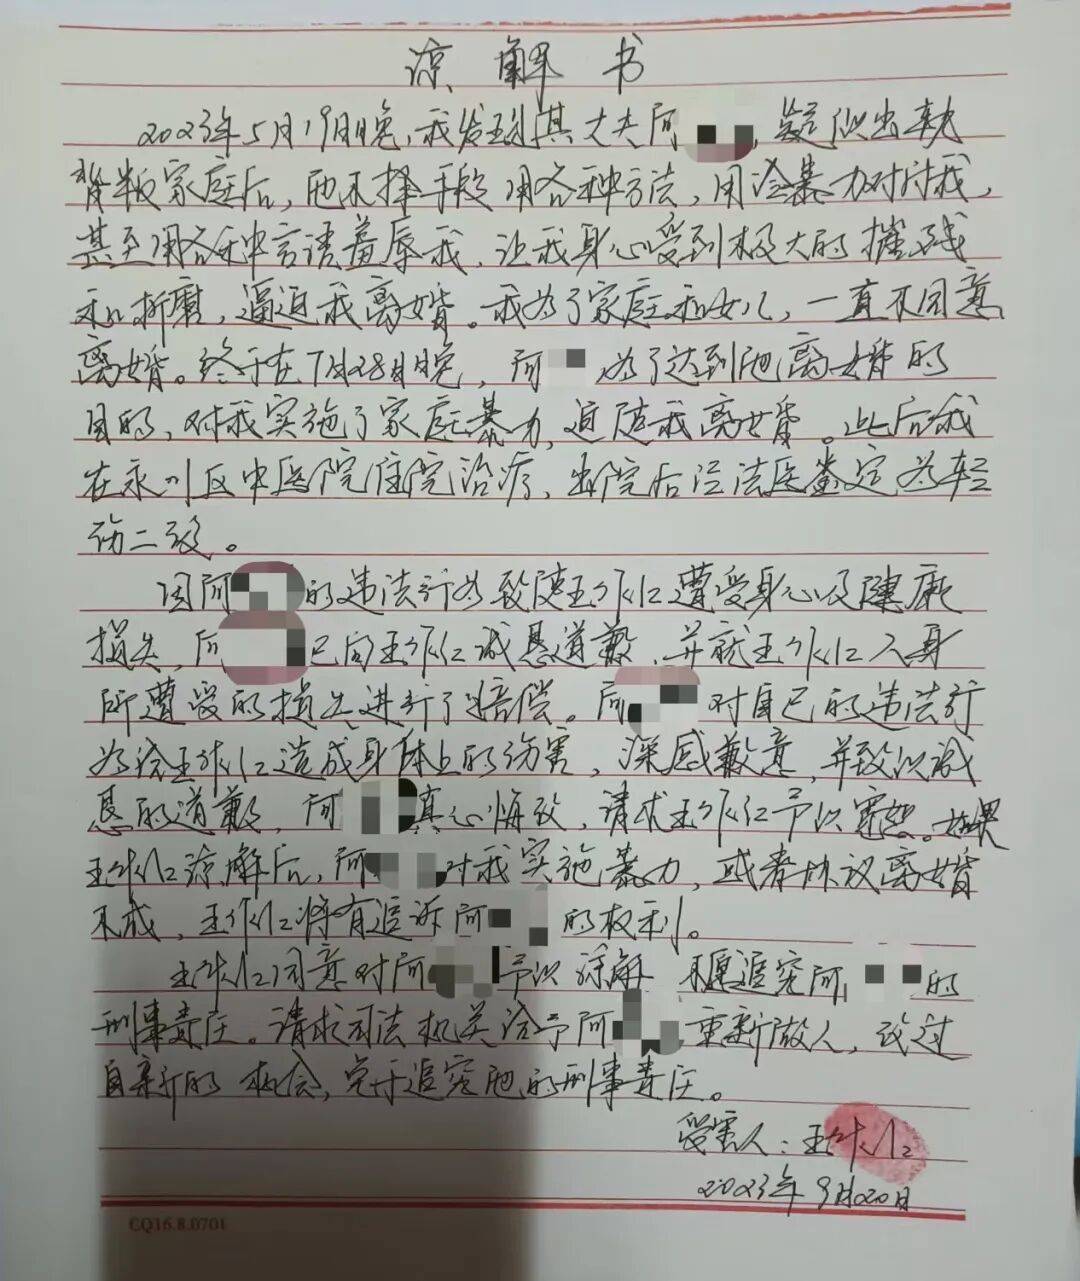 谅解书
2023年5月19日晚,我发现其丈夫阿 ,疑似出轨
背叛家庭后,他不择手段用各种方法,用冷暴力对待我,
甚至用各种言语羞辱我,让我身心受到极大的摧残
和折磨,逼迫我离婚。我为了家庭和女儿,一直不同意
离婚。终于在7月28日晚,阿 为了达到他离婚的
目的,对我实施了家庭暴力,迫使我离婚。此后我
在永川区中医院住院治疗,出院后经法医鉴定为轻
伤二级。
因阿 的违法行为致使王 遭受身心及健康
损失,阿 已向王 诚恳道歉,并就王 人身
所遭受的损失进行了赔偿。阿 对自己的违法行
为给王 造成身体上的伤害,深感歉意,并致以诚
恳的道歉,阿 真心悔改,请求王 予以宽恕。如果
王 谅解后,阿 对我实施暴力,或者协议离婚
不成,王 将有追诉阿 的权利。
王 同意对阿 予以谅解 不愿追究阿 的
刑事责任。请求司法机关给予阿 重新做人,改过
自新的机会,免于追究他的刑事责任。
受害人:王
2023年9月20日
CQ16.8.0701